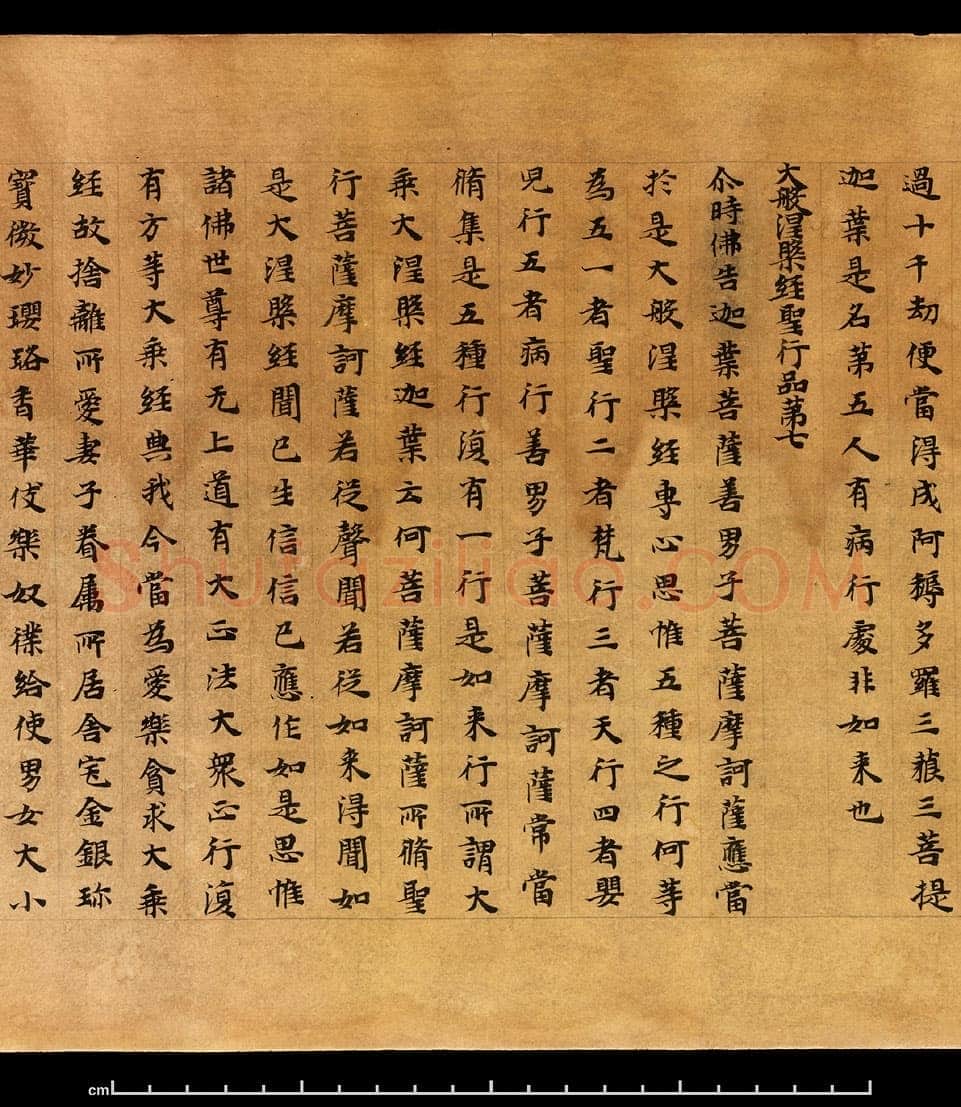 過十千劫便當得成阿耨多羅三藐三菩提
迦葉是名第五人有病行處非如来也
大般涅槃經聖行品第七
尒時佛告迦葉菩薩善男子菩薩摩訶薩應當
於是大般涅槃經專心思惟五種之行何等
為五一者聖行二者梵行三者天行四者嬰
児行五者病行善男子菩薩摩訶薩常當
脩集是五種行復有一行是如来行所謂大
乗大涅槃經迦葉云何菩薩摩訶薩所脩聖
行菩薩摩訶薩若從聲聞若從如来得聞如
是大涅槃經聞已生信信已應作如是思惟
諸佛世尊有无上道有大正法大衆正行復
有方等大乗經典我今當為愛樂貪求大乗
經故捨離所愛妻子眷属所居舍宅金銀珎
寳微妙瓔珞香華伎樂奴婢給使男女大小
Shufaziliao.COM
cm